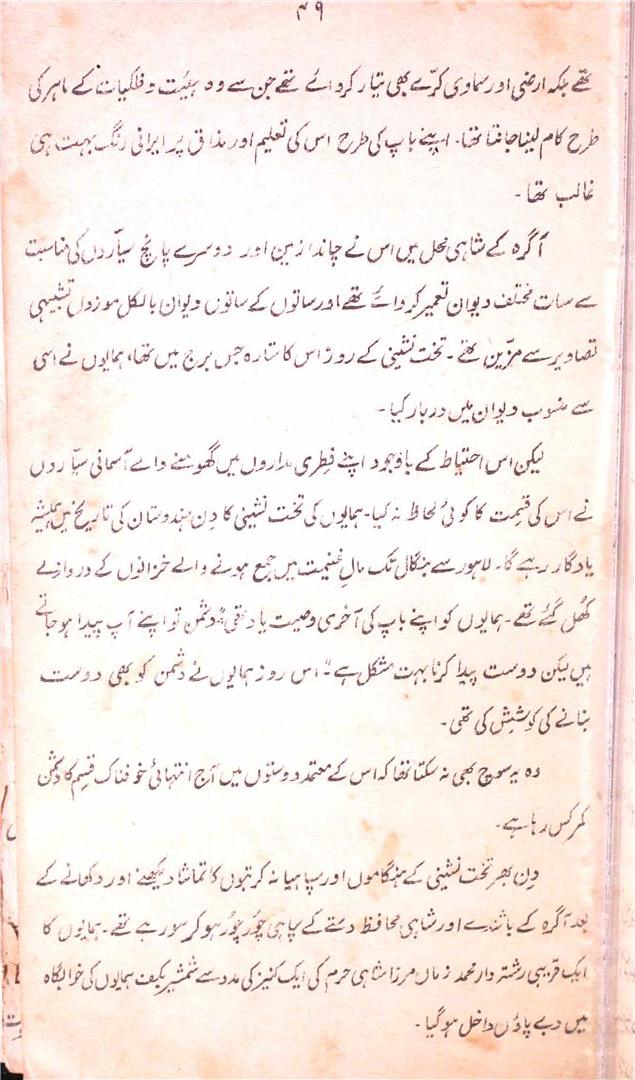 ۴۹
تھے بلکہ ارضی اور سماوی کرّے بھی تیار کروائے تھے جن سے وہ ہیئت و فلکیات کے ماہر کی
طرح کام لینا جانتا تھا۔ اپنے باپ کی طرح اس کی تعلیم اور مذاق پر ایرانی رنگ بہت ہی
غالب تھا۔
آگرہ کے شاہی محل میں اس نے چاند، زمین اور دوسرے پانچ سیّاروں کی مناسبت
سے سات مختلف دیوان تعمیر کروائے تھے اور ساتوں کے ساتوں دیوان بالکل موزوں تشبیہی
تصاویر سے مزّین تھے۔ تخت نشینی کے روز اس کا ستارہ جس برج میں تھا، ہمایوں نے اسی
سے منسوب دیوان میں دربار کیا۔
لیکن اس احتیاط کے باوجود اپنے فِطری مداروں میں گھومنے والے آسمانی سیّاروں
نے اس کی قسمت کا کوئی لحاظ نہ کیا۔ ہمایوں کی تخت نشینی کا دِن ہندوستان کی تاریخ میں ہمیشہ
یادگار رہے گا۔ لاہور سے بنگال تک مالِ غنیمت میں جمع ہونے والے خزانوں کے دروازے
کھُل گئے تھے۔ ہمایوں کو اپنے باپ کی آخری وصیت یاد تھی: "دشمن تو اپنے آپ پیدا ہو جاتے
ہیں لیکن دوست پیدا کرنا بہت مشکل ہے"۔ اس روز ہمایوں نے دشمن کو بھی دوست
بنانے کی کوشِش کی تھی۔
وہ یہ سوچ بھی نہ سکتا تھا کہ اس کے معتمد دوستوں میں آج انتہائی خوفناک قسم کا دشمن
کمر کس رہا ہے۔
دِن بھر تخت نشینی کے ہنگاموں اور سپاہیانہ کرتبوں کا تماشا دیکھنے اور دکھانے کے
بعد آگرہ کے باشندے اور شاہی محافظ دستے کے سپاہی چُور چُور ہو کر سو رہے تھے۔ ہمایوں کا
ایک قریبی رشتہ دار محمد زماں مرزا شاہی حرم کی ایک کنیز کی مدد سے شمشیر بکف ہمایوں کی خوابگاہ
میں دبے پاؤں داخل ہو گیا۔